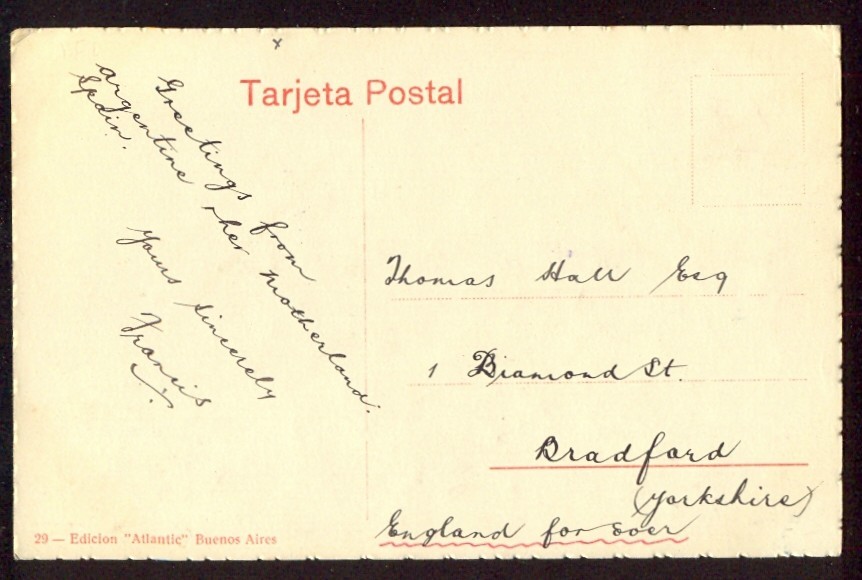 Tarjeta Postal
Greetings from
Argentine & her motherland.
Spain.
Yours sincerely
Francis
Thomas Hall Esq
1 Diamond St.
Bradford
(Yorkshire)
England for ever
29 — Edicion "Atlantic" Buenos Aires